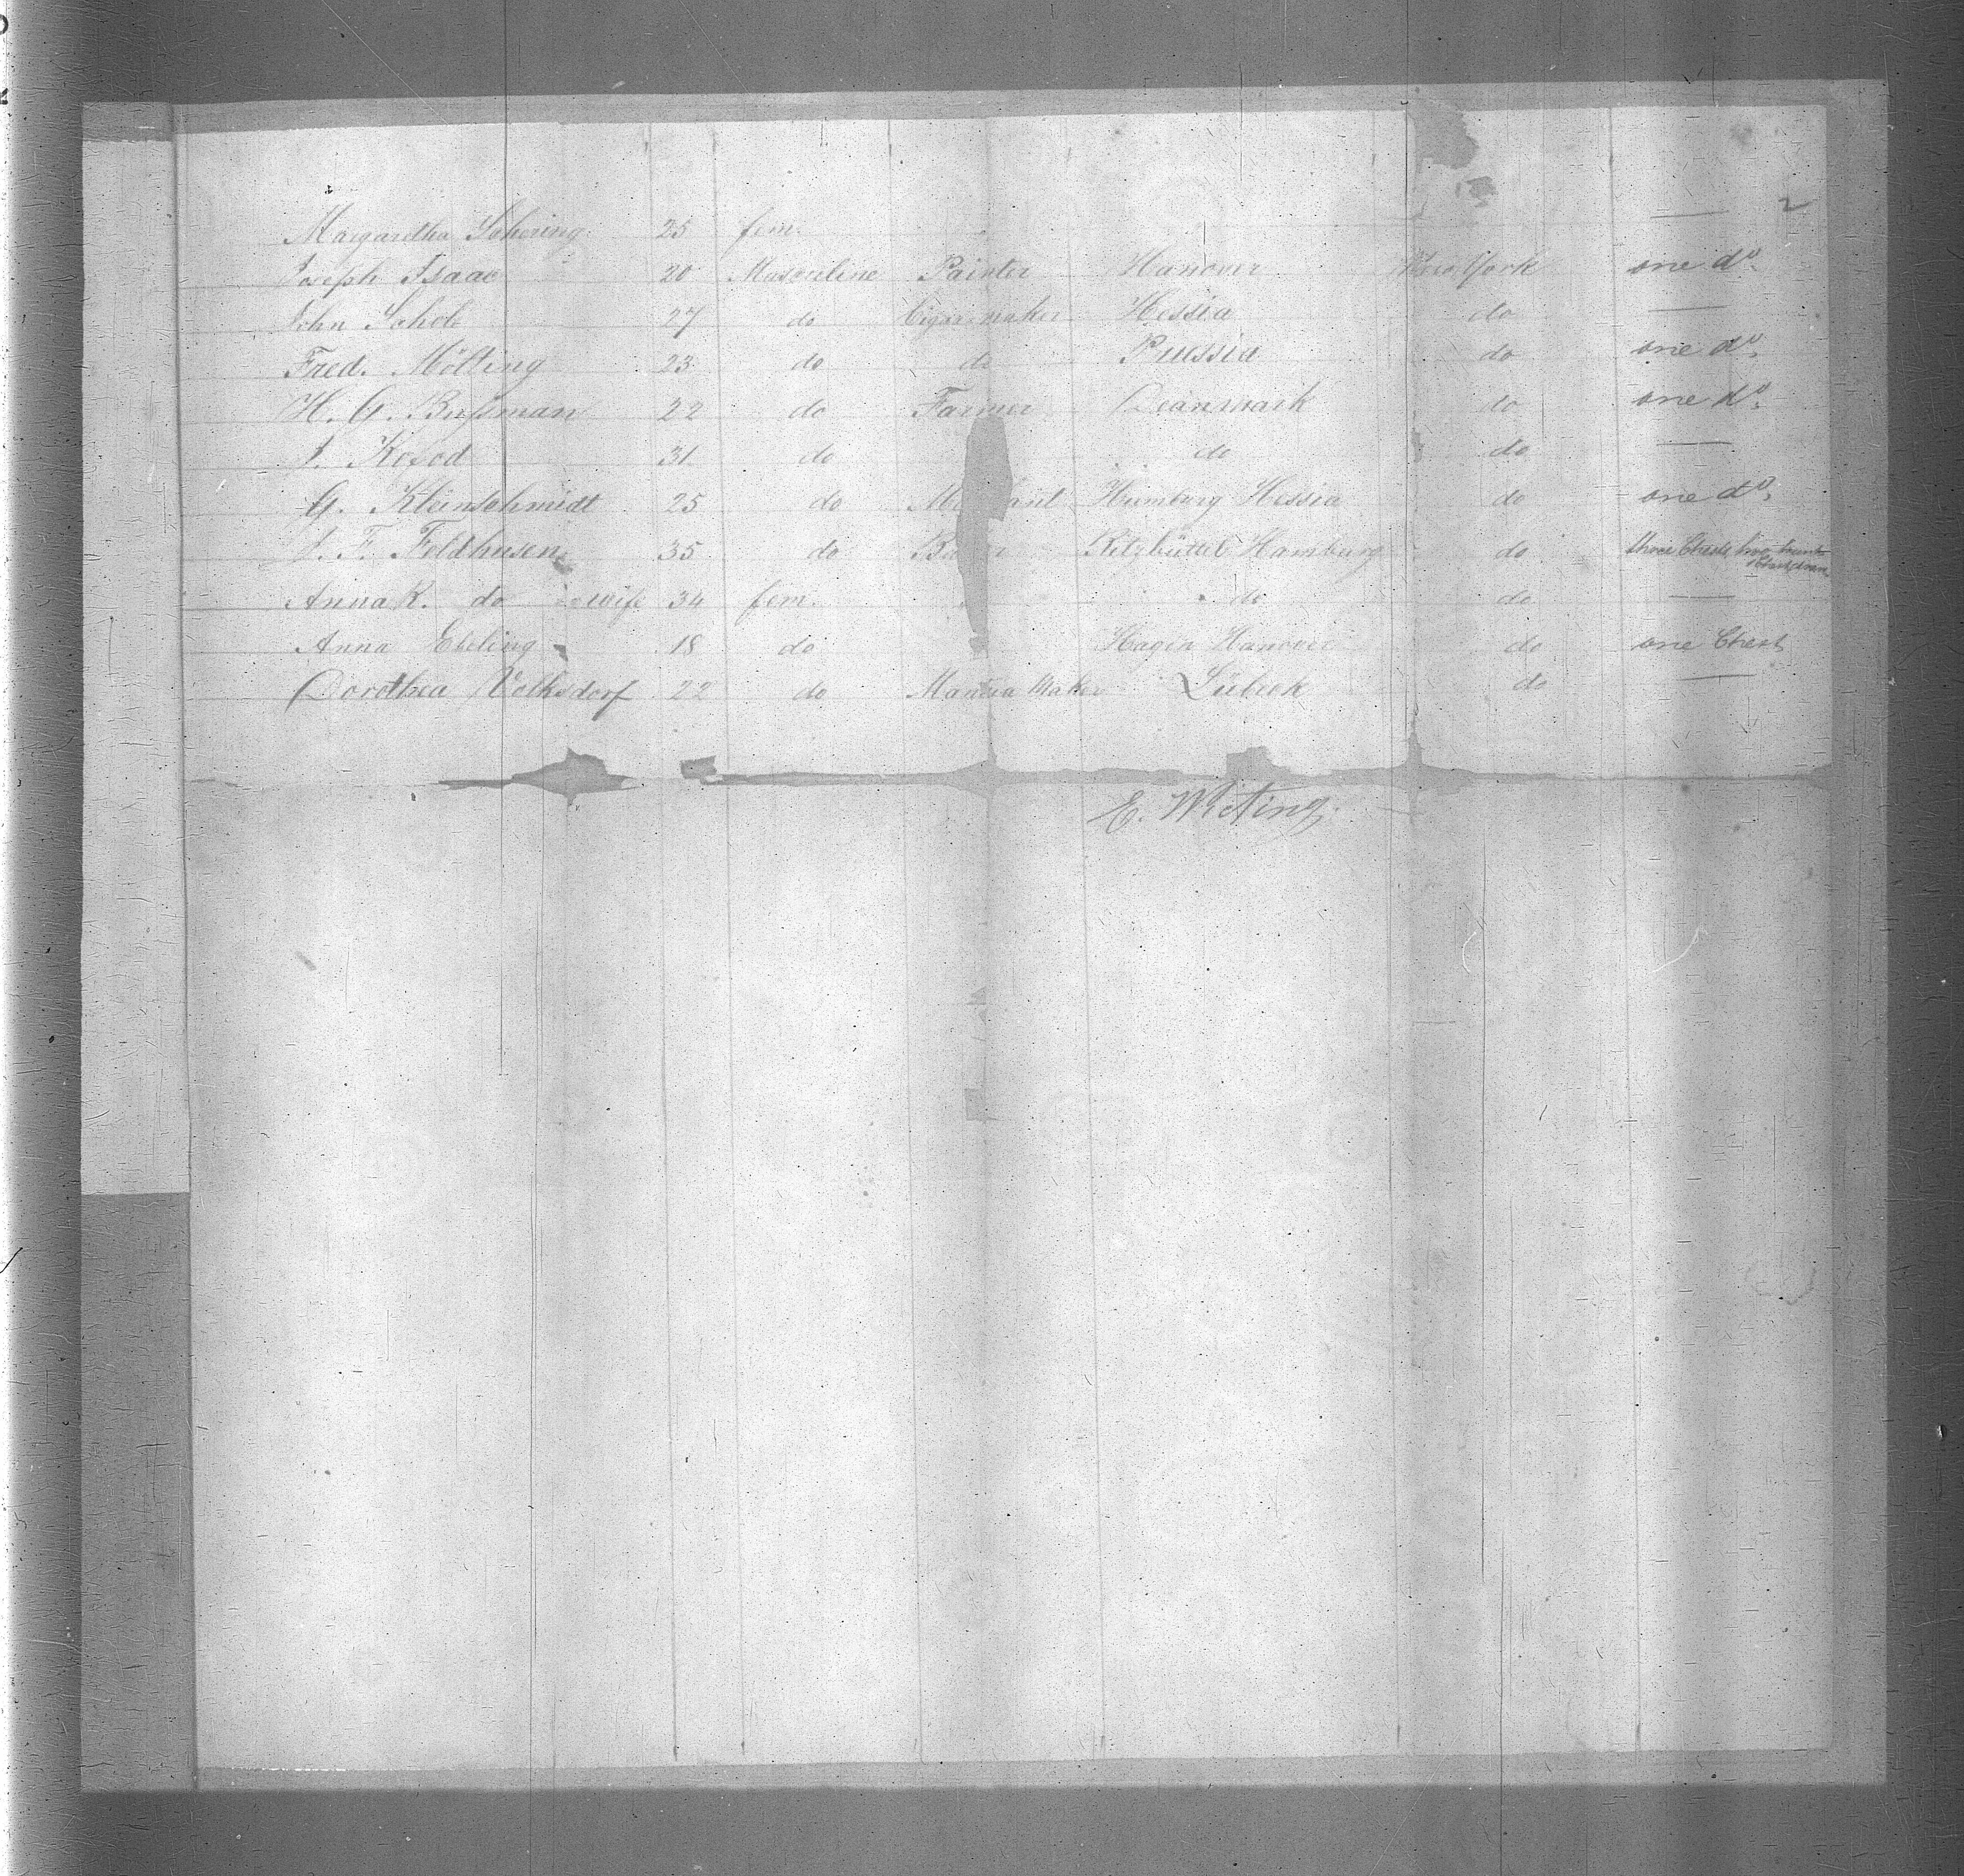 2
Margaretha Schering 25 fem.
Joseph Isaac 20 Masculine Painter Hanover New York one do.
John Schol 27 do Cigarmaker Hessia do —
Fred. Mölting 23 do do Prussia do one do.
H. G. Bußman 22 do Farmer Deanmark do one do.
J. Kosod 31 do do do —
G. Kleinschmidt 25 do Humburg Hessia do one do.
J. F. Feldhusen 35 do Ritzbüttel Hamburg do three Chests two
Anna K. do wife 34 fem. do do —
Anna Ebeling 18 do Hagen Hanover do one Chest
Dorothea Volksdorf 22 do Mantua Maker Lübeck do —
E. Wieting.